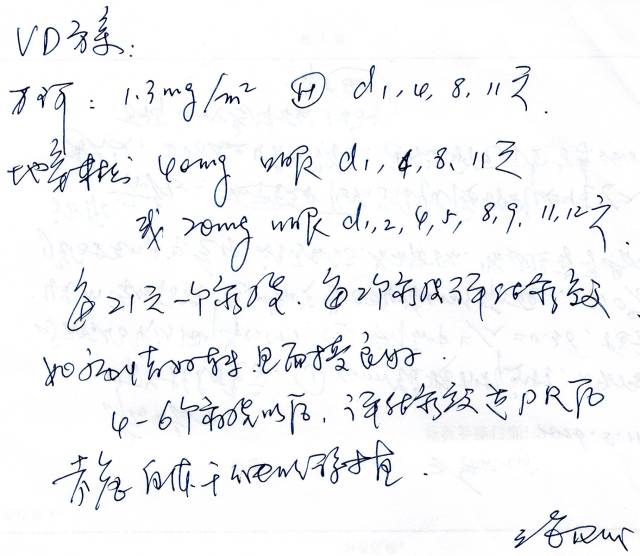 VD方案:
万珂: 1.3mg/m² H d1,4,8,11天.
地塞米松 40mg 口服 d1,4,8,11天
或 20mg 口服 d1,2,4,5,8,9,11,12天.
每21天一个疗程、每2个疗程评估疗效.
如 有效 且耐受良好.
4-6个疗程以后,评估疗效达PR后
考虑自体干细胞移植.